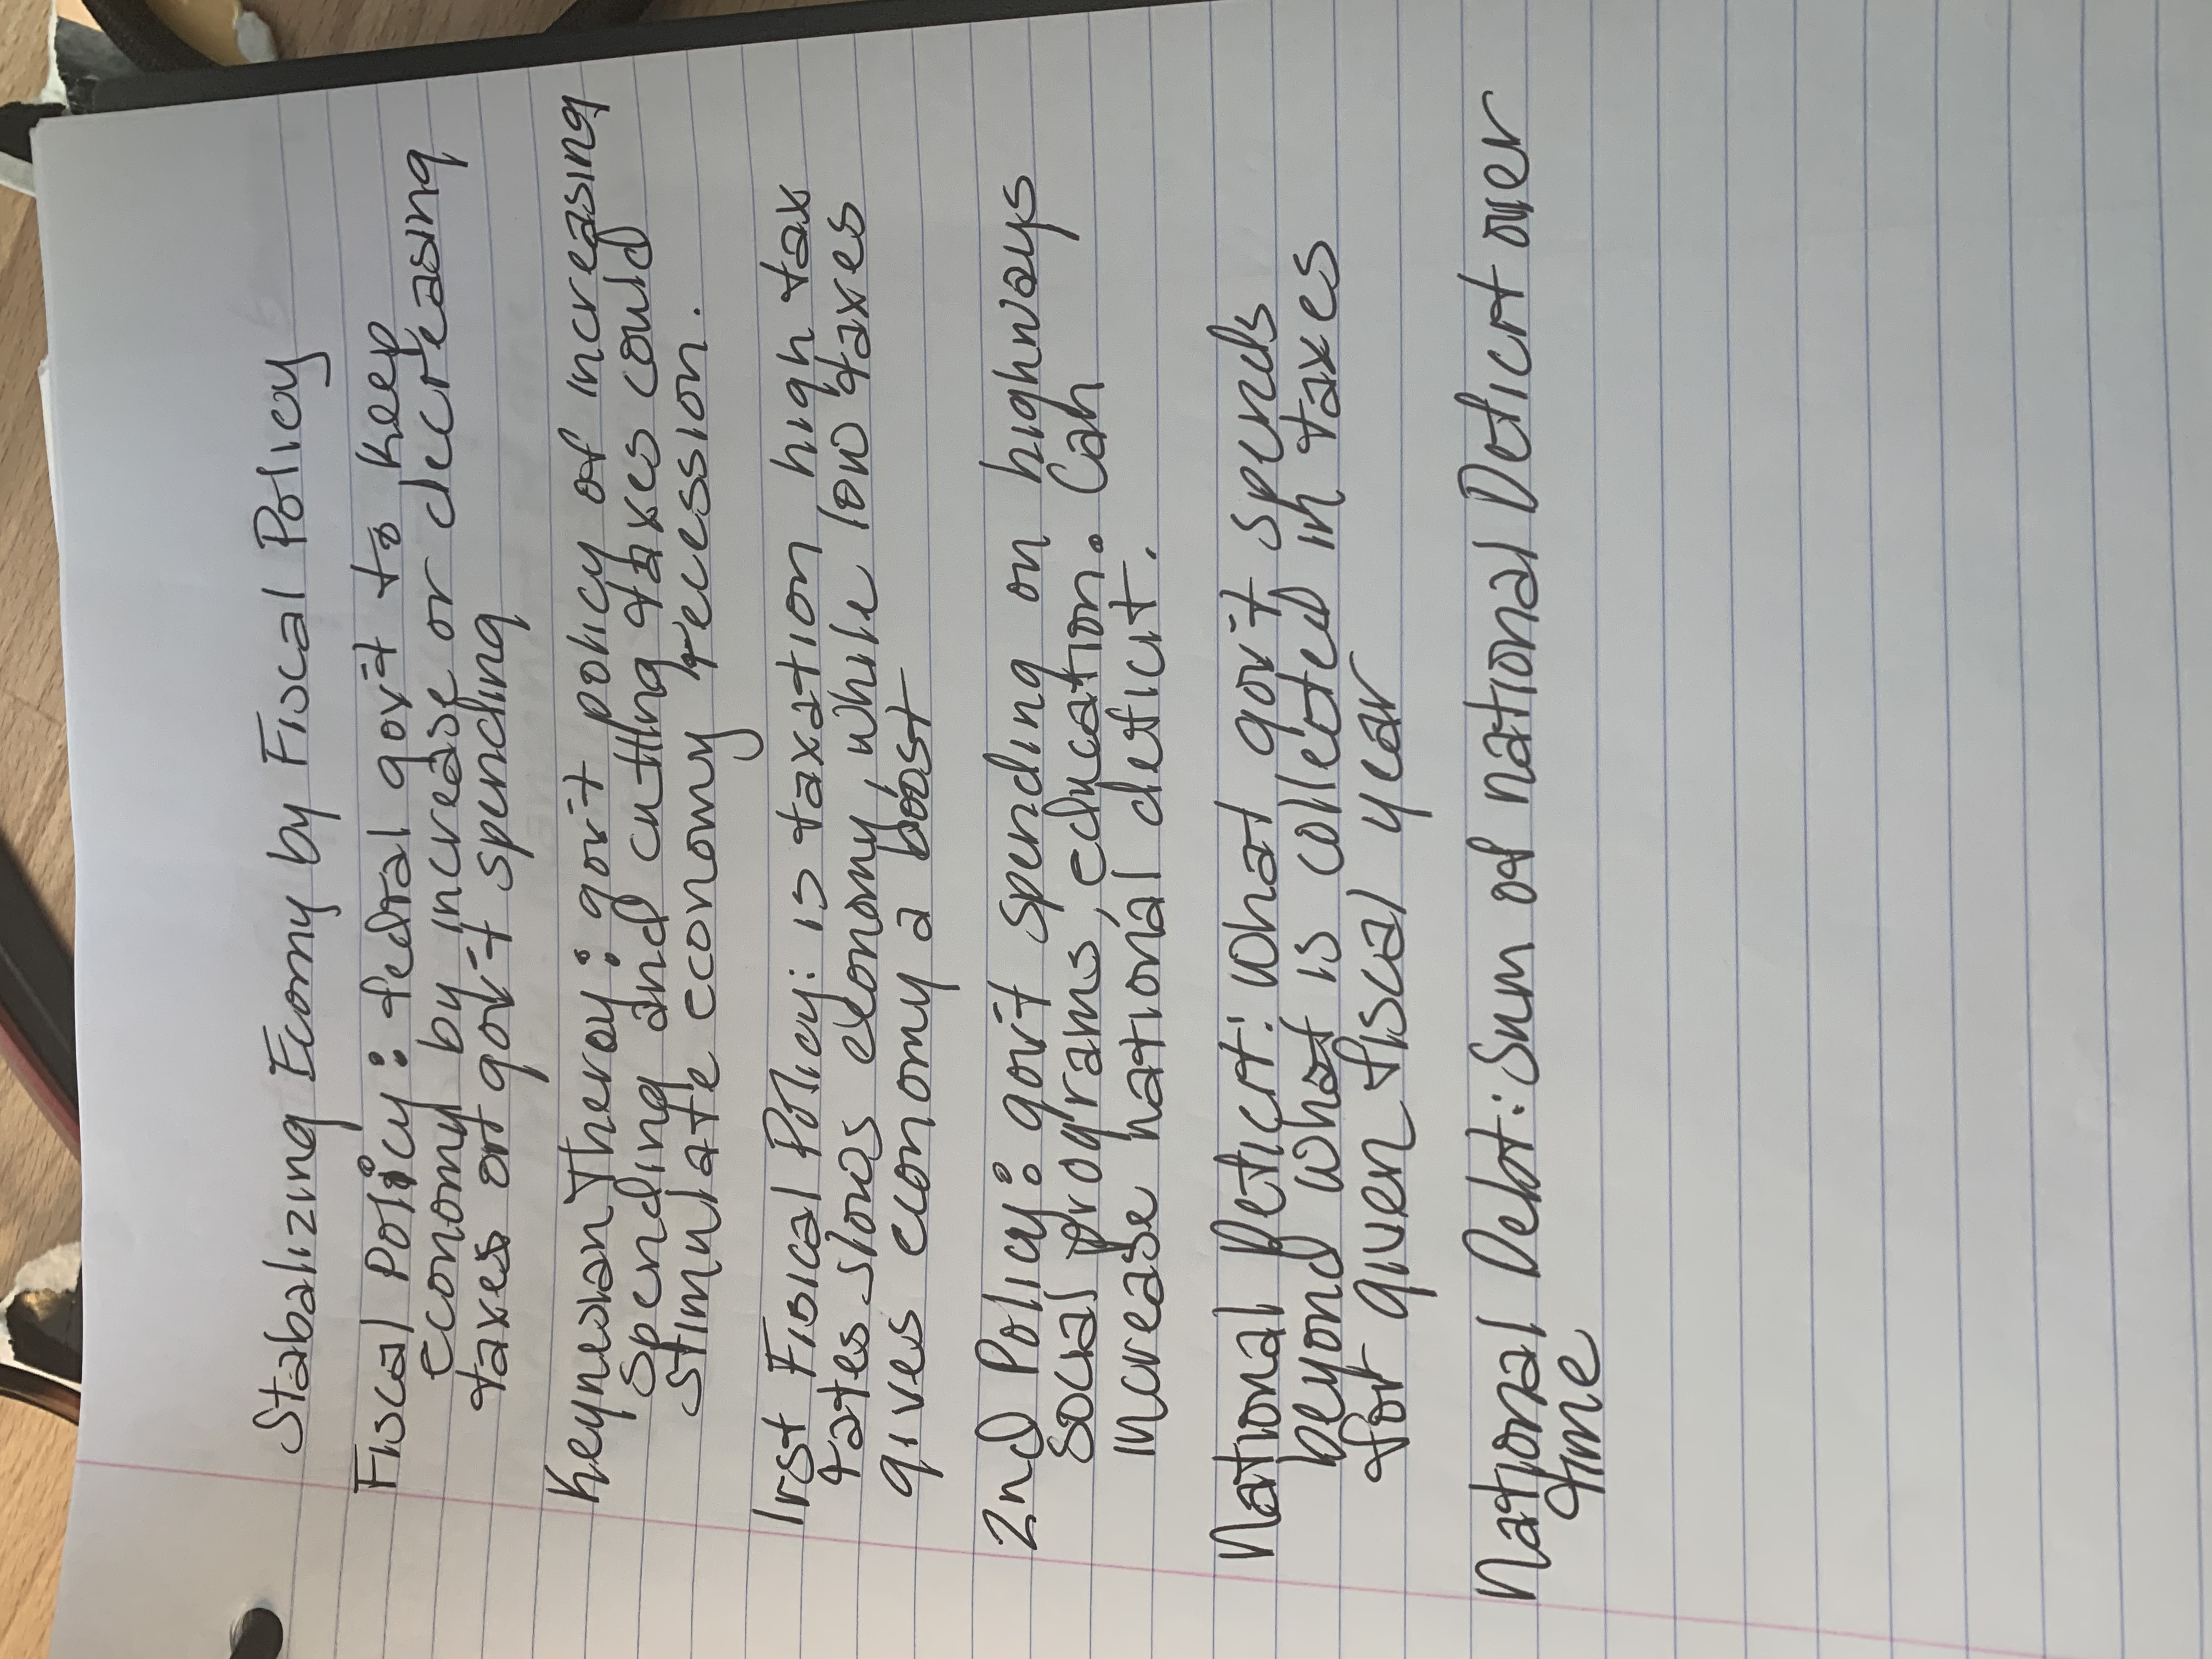 Stabalizing Economy by Fiscal Policy
Fiscal Policy: fedral gov't to keep
economy by increase or decreasing
taxes or gov't spending
Keynesian Theroy: gov't policy of increasing
spending and cutting taxes could
stimulate economy recession.
1rst Fisical Policy: is taxation high tax
rates slows economy, while low taxes
gives economy a boost
2nd Policy: gov't spending on highways
social programs, education. Can
increase national deficit.
National Deficit: what gov't spends
beyond what is collected in taxes
for given fiscal year
National Debt: Sum of national Deficit over
time